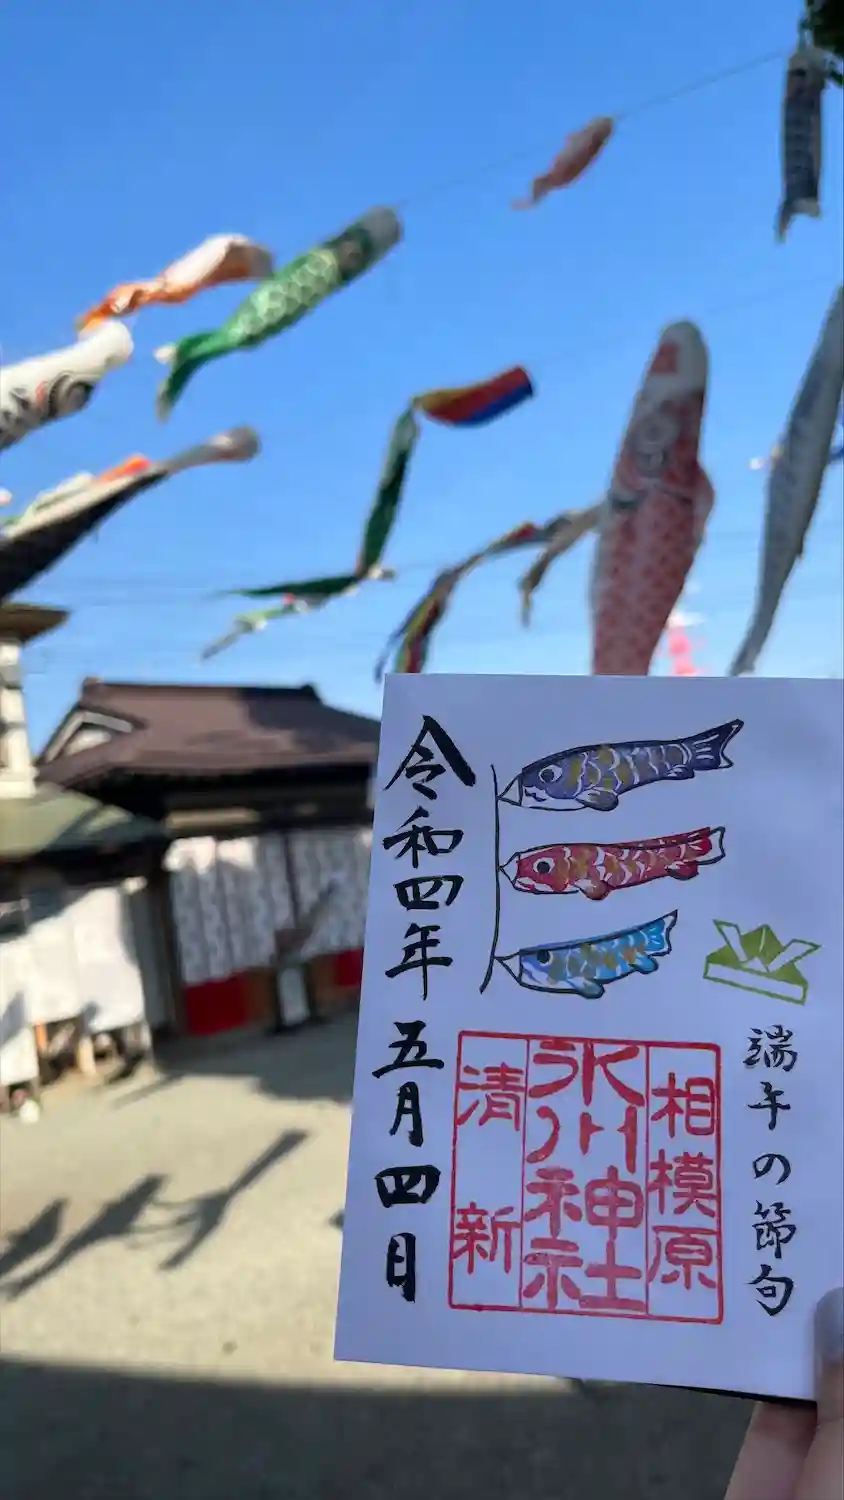 端午の節句
相模原
氷川神社
清新
令和四年 五月四日